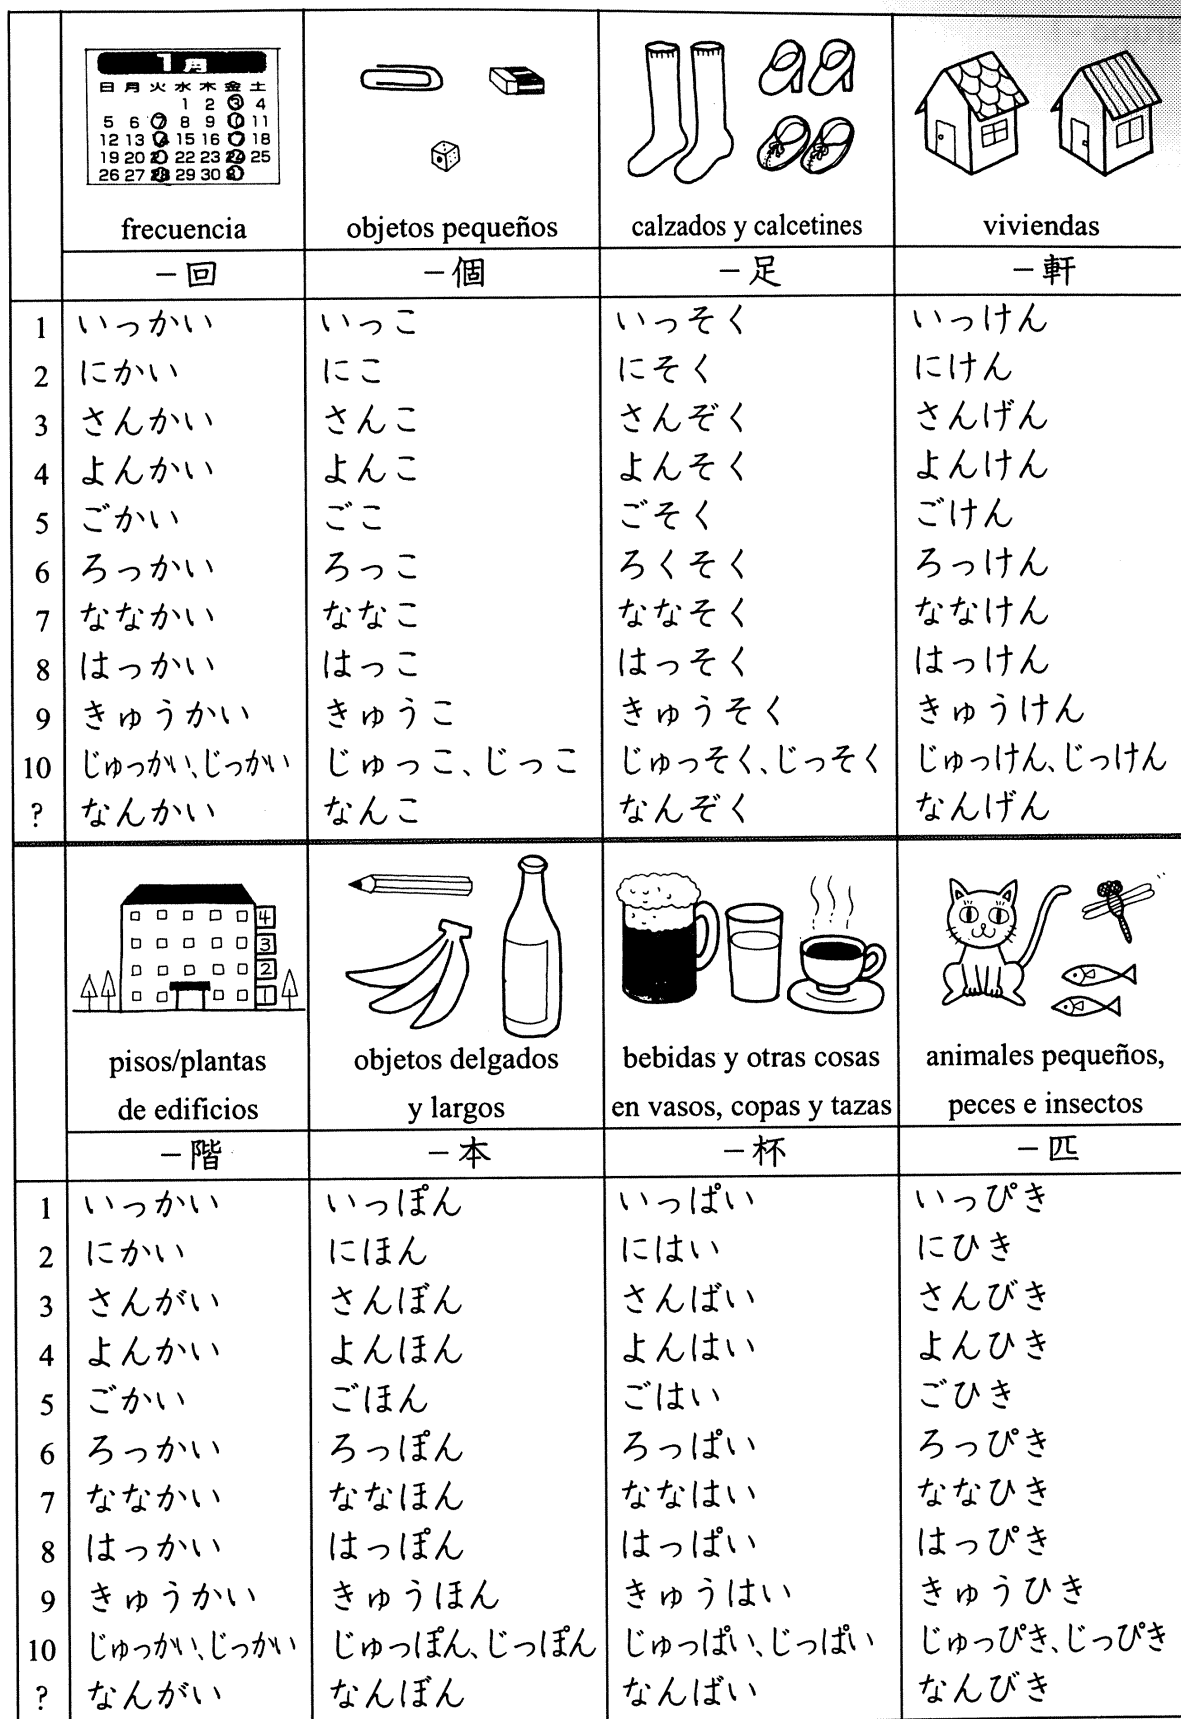 1月
日 月 火 水 木 金 土
1 2 3 4
5 6 7 8 9 10 11
12 13 14 15 16 17 18
19 20 21 22 23 24 25
26 27 28 29 30 31
frecuencia objetos pequeños calzados y calcetines viviendas
－回 －個 －足 －軒
1 いっかい いっこ いっそく いっけん
2 にかい にこ にそく にけん
3 さんかい さんこ さんぞく さんげん
4 よんかい よんこ よんそく よんけん
5 ごかい ごこ ごそく ごけん
6 ろっかい ろっこ ろくそく ろっけん
7 ななかい ななこ ななそく ななけん
8 はっかい はっこ はっそく はっけん
9 きゅうかい きゅうこ きゅうそく きゅうけん
10 じゅっかい、じっかい じゅっこ、じっこ じゅっそく、じっそく じゅっけん、じっけん
? なんかい なんこ なんぞく なんげん
4
3
2
1
pisos/plantas objetos delgados bebidas y otras cosas animales pequeños,
de edificios y largos en vasos, copas y tazas peces e insectos
－階 －本 －杯 －匹
1 いっかい いっぽん いっぱい いっぴき
2 にかい にほん にはい にひき
3 さんがい さんぼん さんばい さんびき
4 よんかい よんほん よんはい よんひき
5 ごかい ごほん ごはい ごひき
6 ろっかい ろっぽん ろっぱい ろっぴき
7 ななかい ななほん ななはい ななひき
8 はっかい はっぽん はっぱい はっぴき
9 きゅうかい きゅうほん きゅうはい きゅうひき
10 じゅっかい、じっかい じゅっぽん、じっぽん じゅっぱい、じっぱい じゅっぴき、じっぴき
? なんがい なんぼん なんばい なんびき